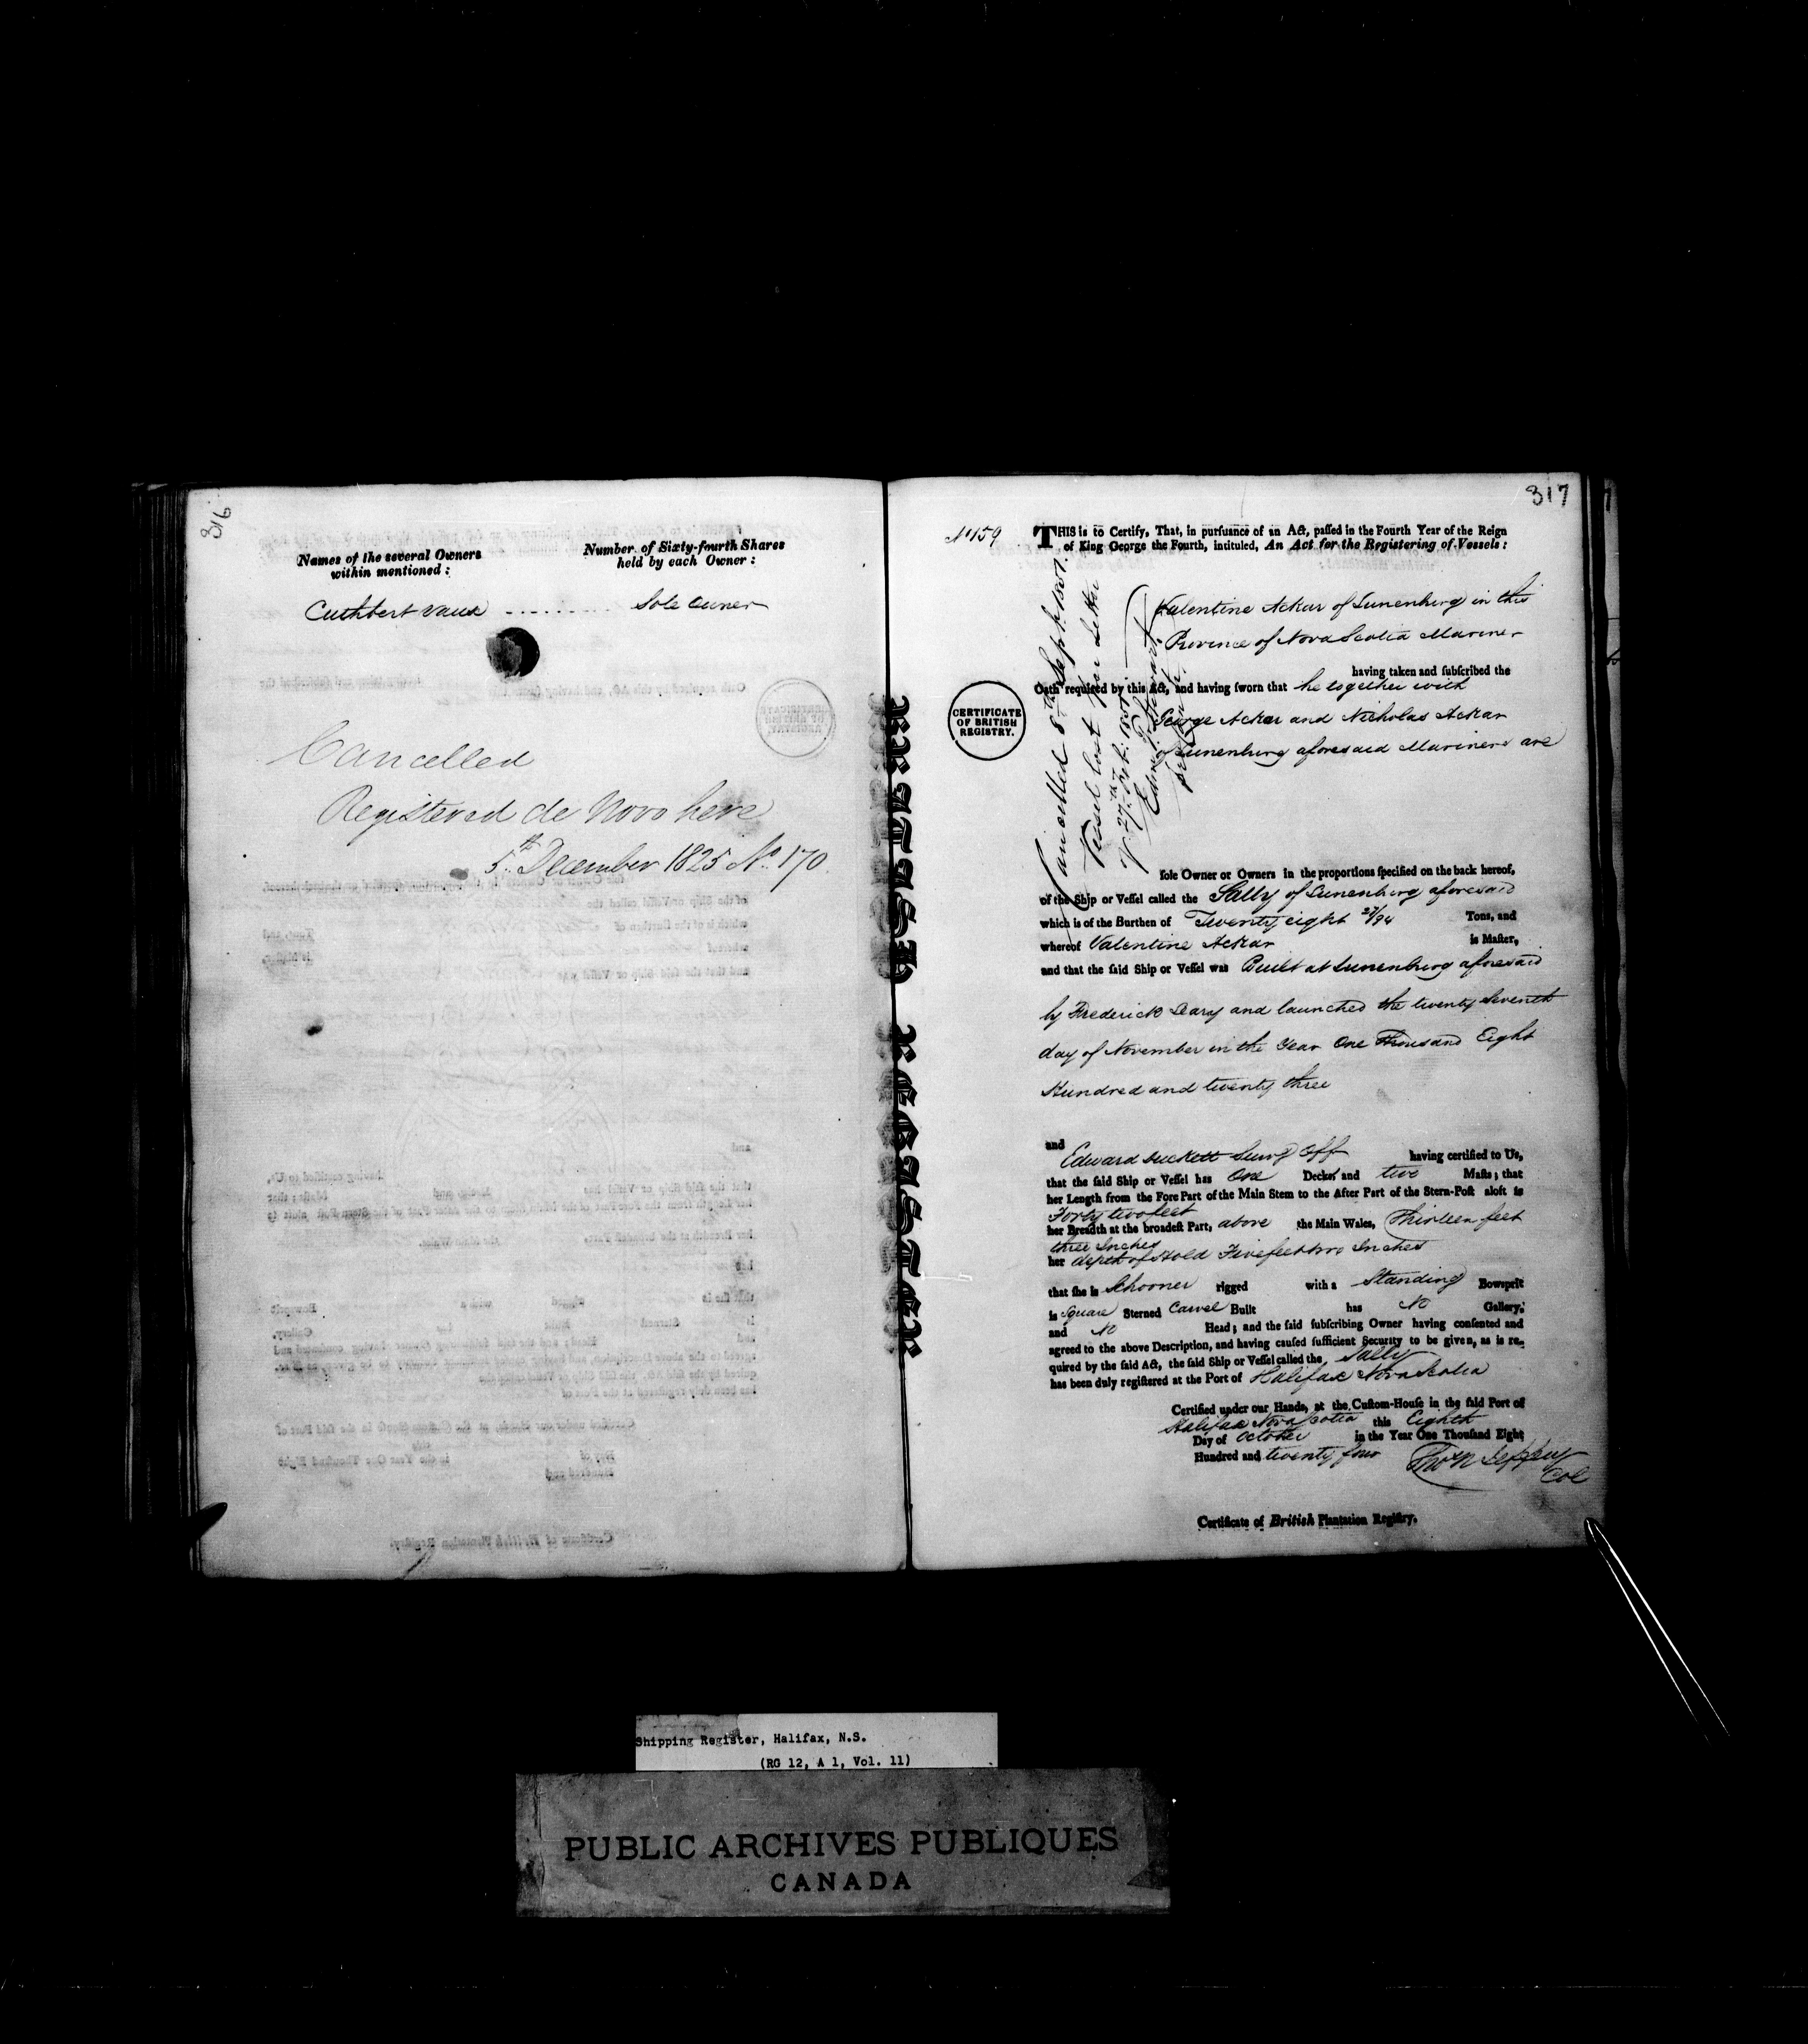 316
Names of the several Owners within mentioned :
Number of Sixty-fourth Shares held by each Owner :
Cuthbert Vaux .......... Sole Owner
Cancelled
Registered de Novo here
5th December 1825 No. 170
BRITISH REGISTER
317
No 159
THIS is to Certify, That, in pursuance of an Act, passed in the Fourth Year of the Reign
of King George the Fourth, intituled, An Act for the Registering of Vessels :
Valentine Ackar of Lunenburg in this
Province of Nova Scotia Mariner
having taken and subscribed the
Oath required by this Act, and having sworn that he together with
George Ackar and Nicholas Ackar
of Lunenburg aforesaid Mariners are
CERTIFICATE
OF BRITISH
REGISTRY.
Cancelled 8th Sept.
Vessel lost
sole Owner or Owners in the proportions specified on the back hereof,
of the Ship or Vessel called the Sally of Lunenburg aforesaid
which is of the Burthen of Twenty eight 27/94 Tons, and
whereof Valentine Ackar is Master,
and that the said Ship or Vessel was Built at Lunenburg aforesaid
by Frederick and launched the twenty seventh
day of November in the Year One Thousand Eight
Hundred and twenty three
and
Edward Duckett Survg Off having certified to Us,
that the said Ship or Vessel has One Deck and two Masts; that
her Length from the Fore Part of the Main Stem to the After Part of the Stern-Post aloft is
Forty two feet
her Breadth at the broadest Part, above the Main Wales, Thirteen feet
three Inches
her depth of Hold Five feet two Inches
that she is Schooner rigged with a Standing Bowsprit
is Square Sterned Carvel Built has No Gallery,
and No Head; and the said subscribing Owner having consented and
agreed to the above Description, and having caused sufficient Security to be given, as is re-
quired by the said Act, the said Ship or Vessel called the Sally
has been duly registered at the Port of Halifax Nova Scotia
Certified under our Hands, at the Custom-House in the said Port of
Halifax Nova Scotia this Eighth
Day of October in the Year One Thousand Eight
Hundred and twenty four
Thos N Jeffery
Col
Certificate of British Plantation Registry.
Shipping Register, Halifax, N.S.
(RG 12, A 1, Vol. 11)
PUBLIC ARCHIVES PUBLIQUES
CANADA